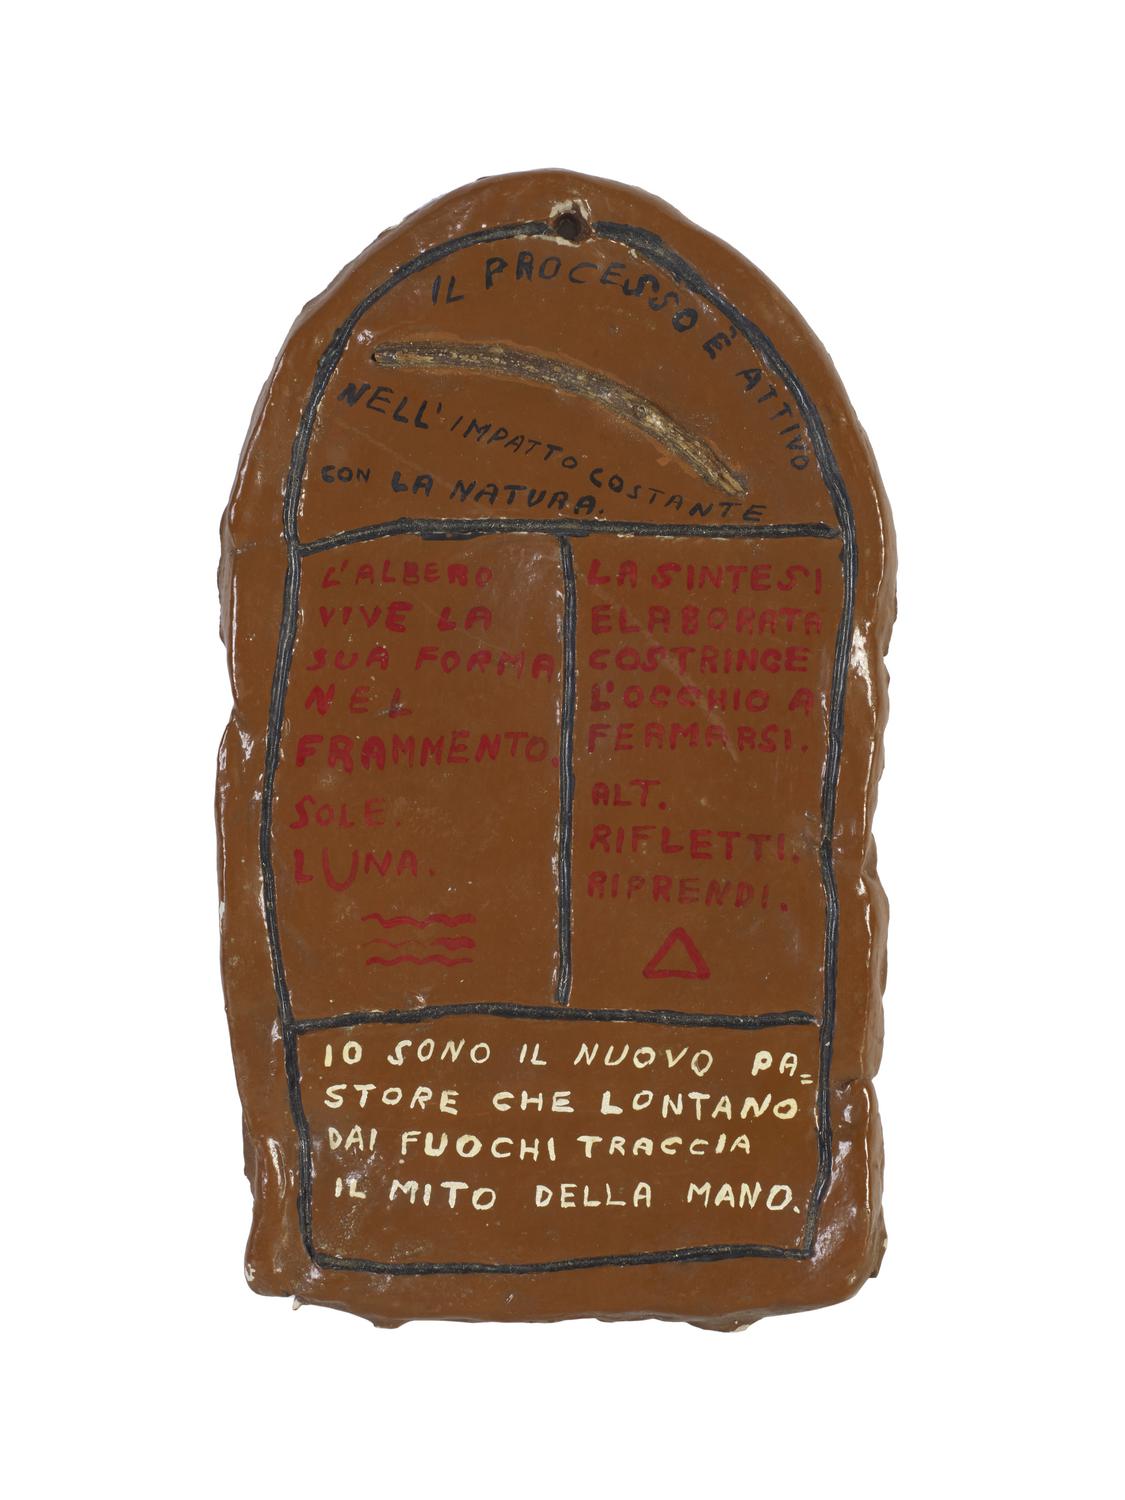 IL PROCESSO È ATTIVO
NELL'IMPATTO COSTANTE
CON LA NATURA.
L'ALBERO
VIVE LA
SUA FORMA
NEL
FRAMMENTO.
SOLE.
LUNA.
LA SINTESI
ELABORATA
COSTRINGE
L'OCCHIO A
FERMARSI.
ALT.
RIFLETTI.
RIPRENDI.
IO SONO IL NUOVO PA=
STORE CHE LONTANO
DAI FUOCHI TRACCIA
IL MITO DELLA MANO.